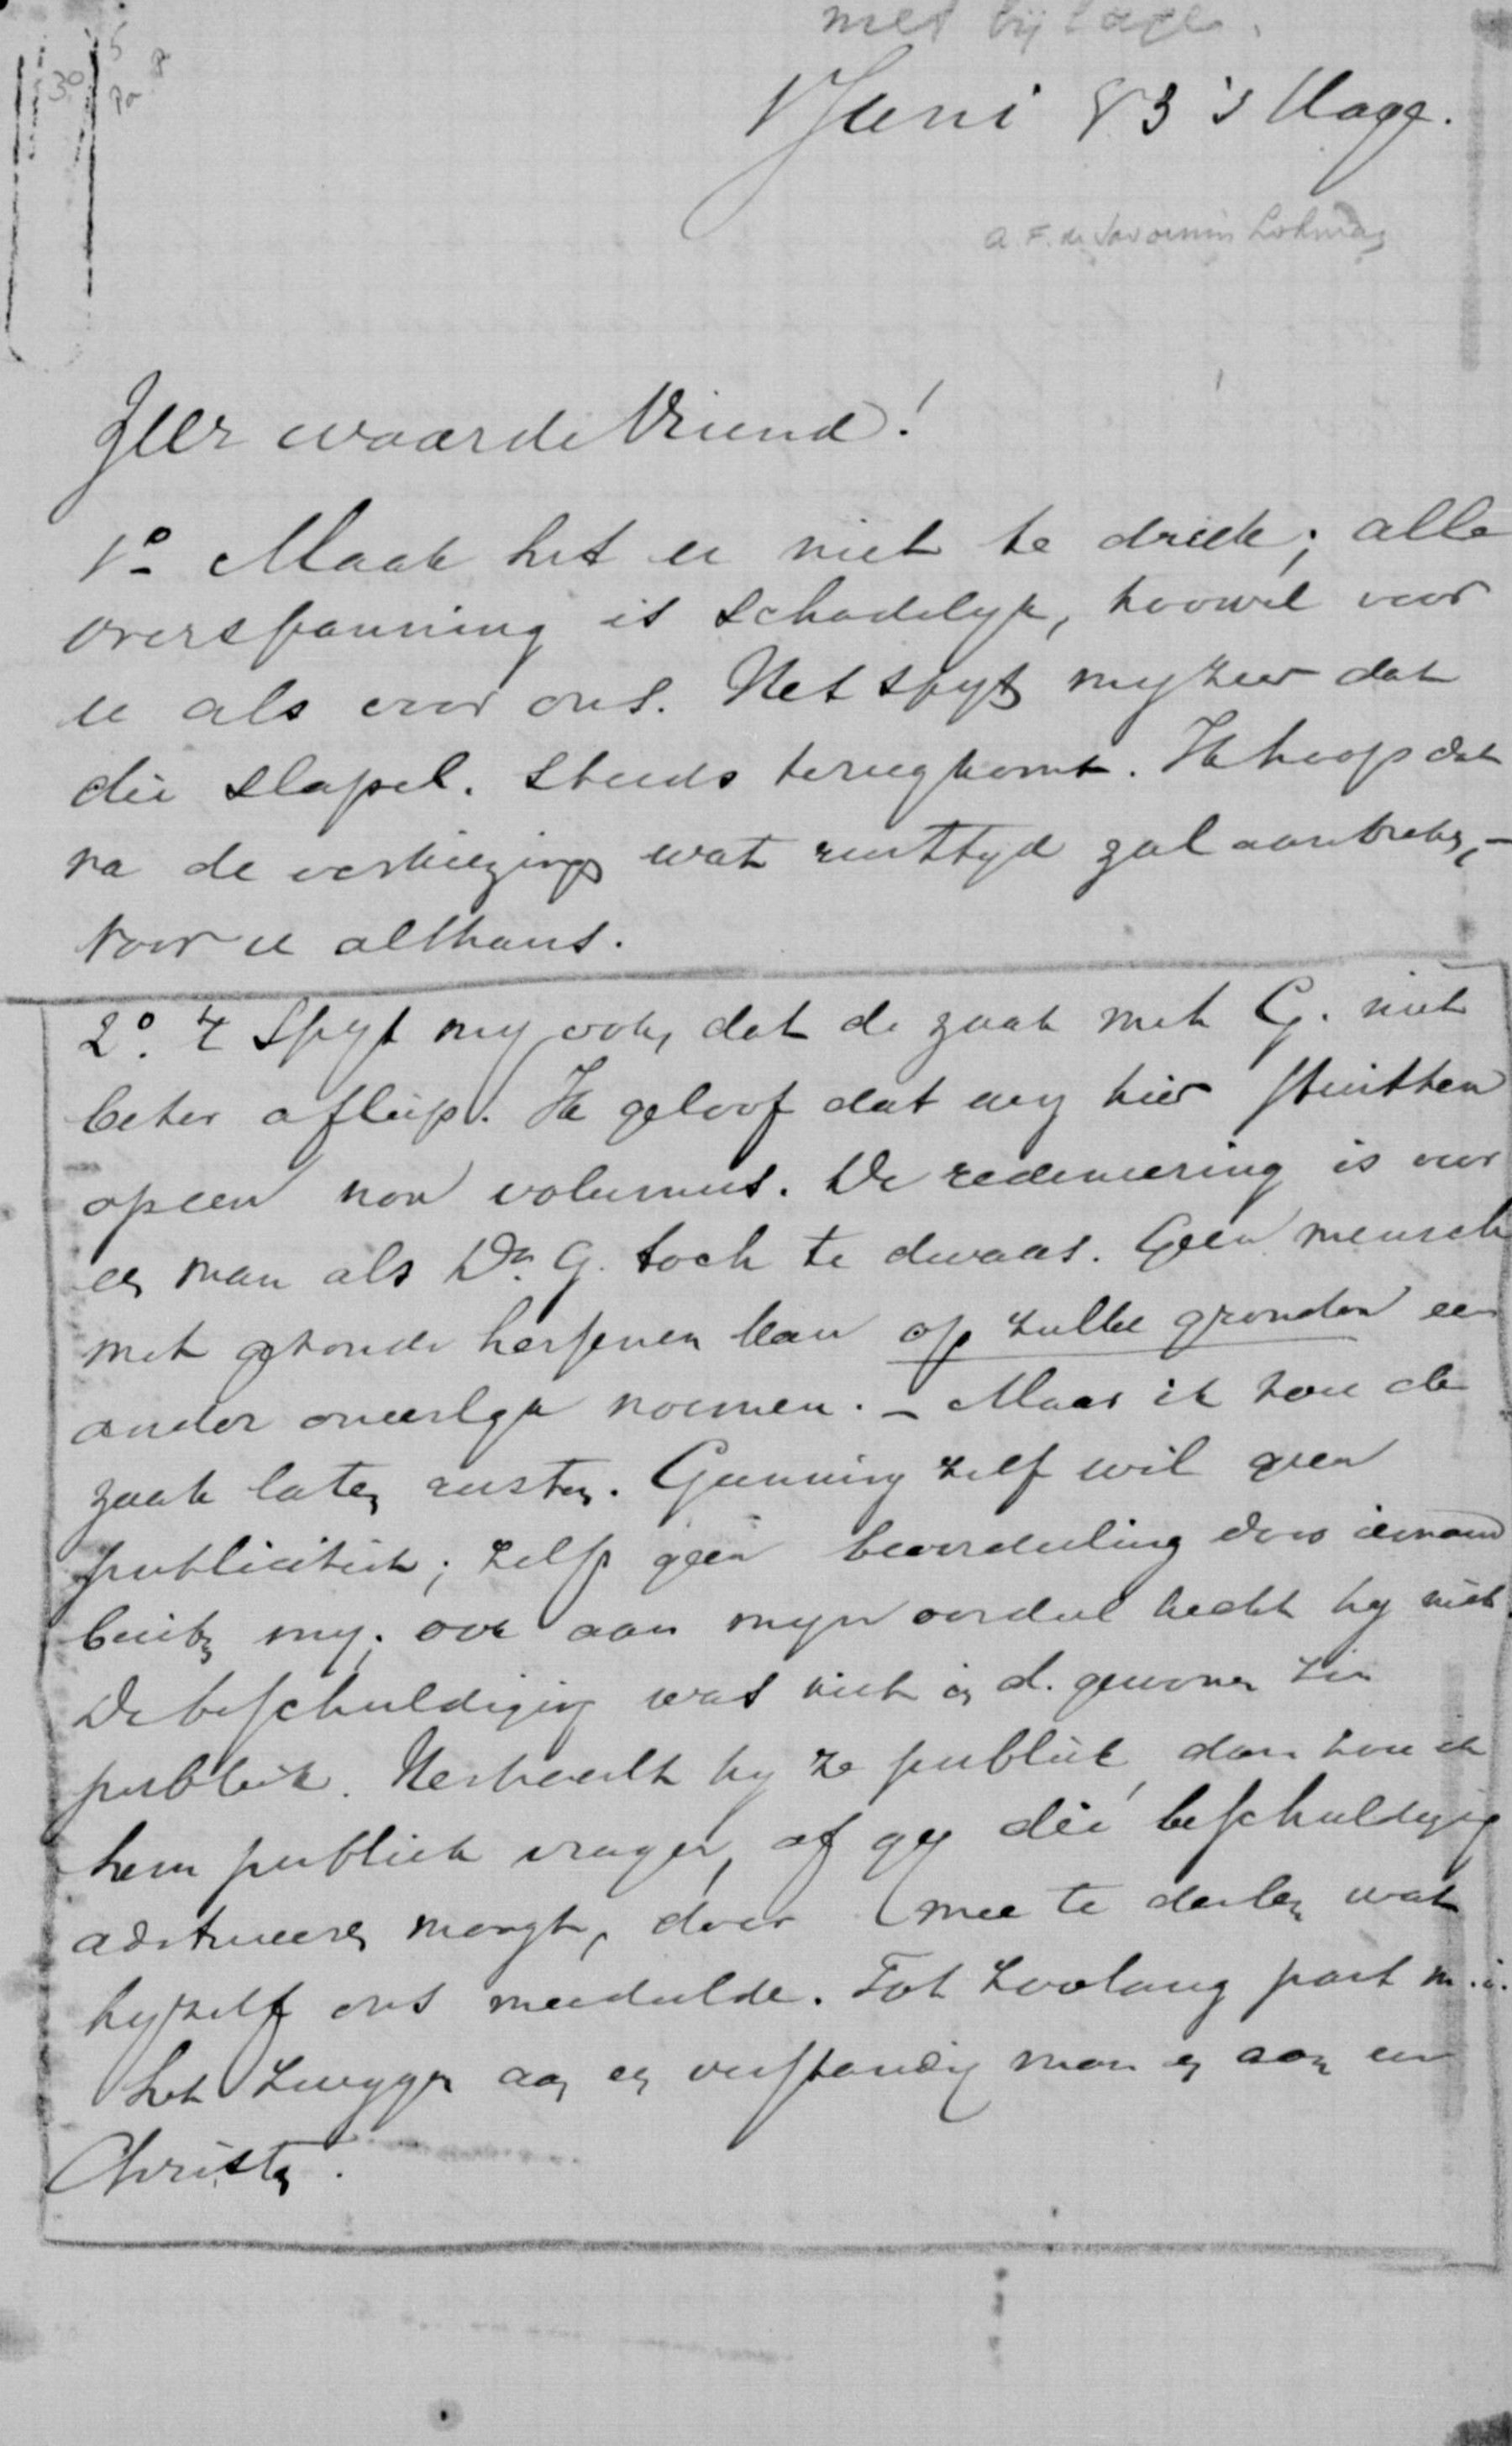 met bijlage.
1 Juni 83 's Hage.
A. F. de Savornin Lohman
Zeer waarde Vriend!
1o Maak het u niet te druk; alle
overspanning is schadelyk, zoowel voor
u als voor ons. Het spyt my zeer dat
die slapel. steeds terugkomt. Ik hoop dat
na de verkiezing wat rusttyd zal aanbreken, -
voor u althans.
2o. 't Spyt my ook, dat de zaak met G. niet
beter afliep. Ik geloof dat wy hier stuitten
op een non volumus. De redeneering is voor
een man als Dr. G. toch te dwaas. Geen mensch
met gezonde hersenen kan op zulke gronden een
ander oneerlyk noemen. - Maar ik zou de
zaak laten rusten. Gunning zelf wil geen
publiciteit; zelfs geen beoordeeling door iemand
buiten my; ook aan myn oordeel hecht hy niet.
De beschuldiging was niet in d. gewonen zin
publiek. Herhaalt hy ze publiek, dan zou ik
hem publiek vragen, of gy die beschuldiging
adstrueeren moogt, door mee te deelen wat
hyzelf ons meedeelde. Tot zoolang past m.i.
het zwygen aan een verstandig man en aan een
Christen.